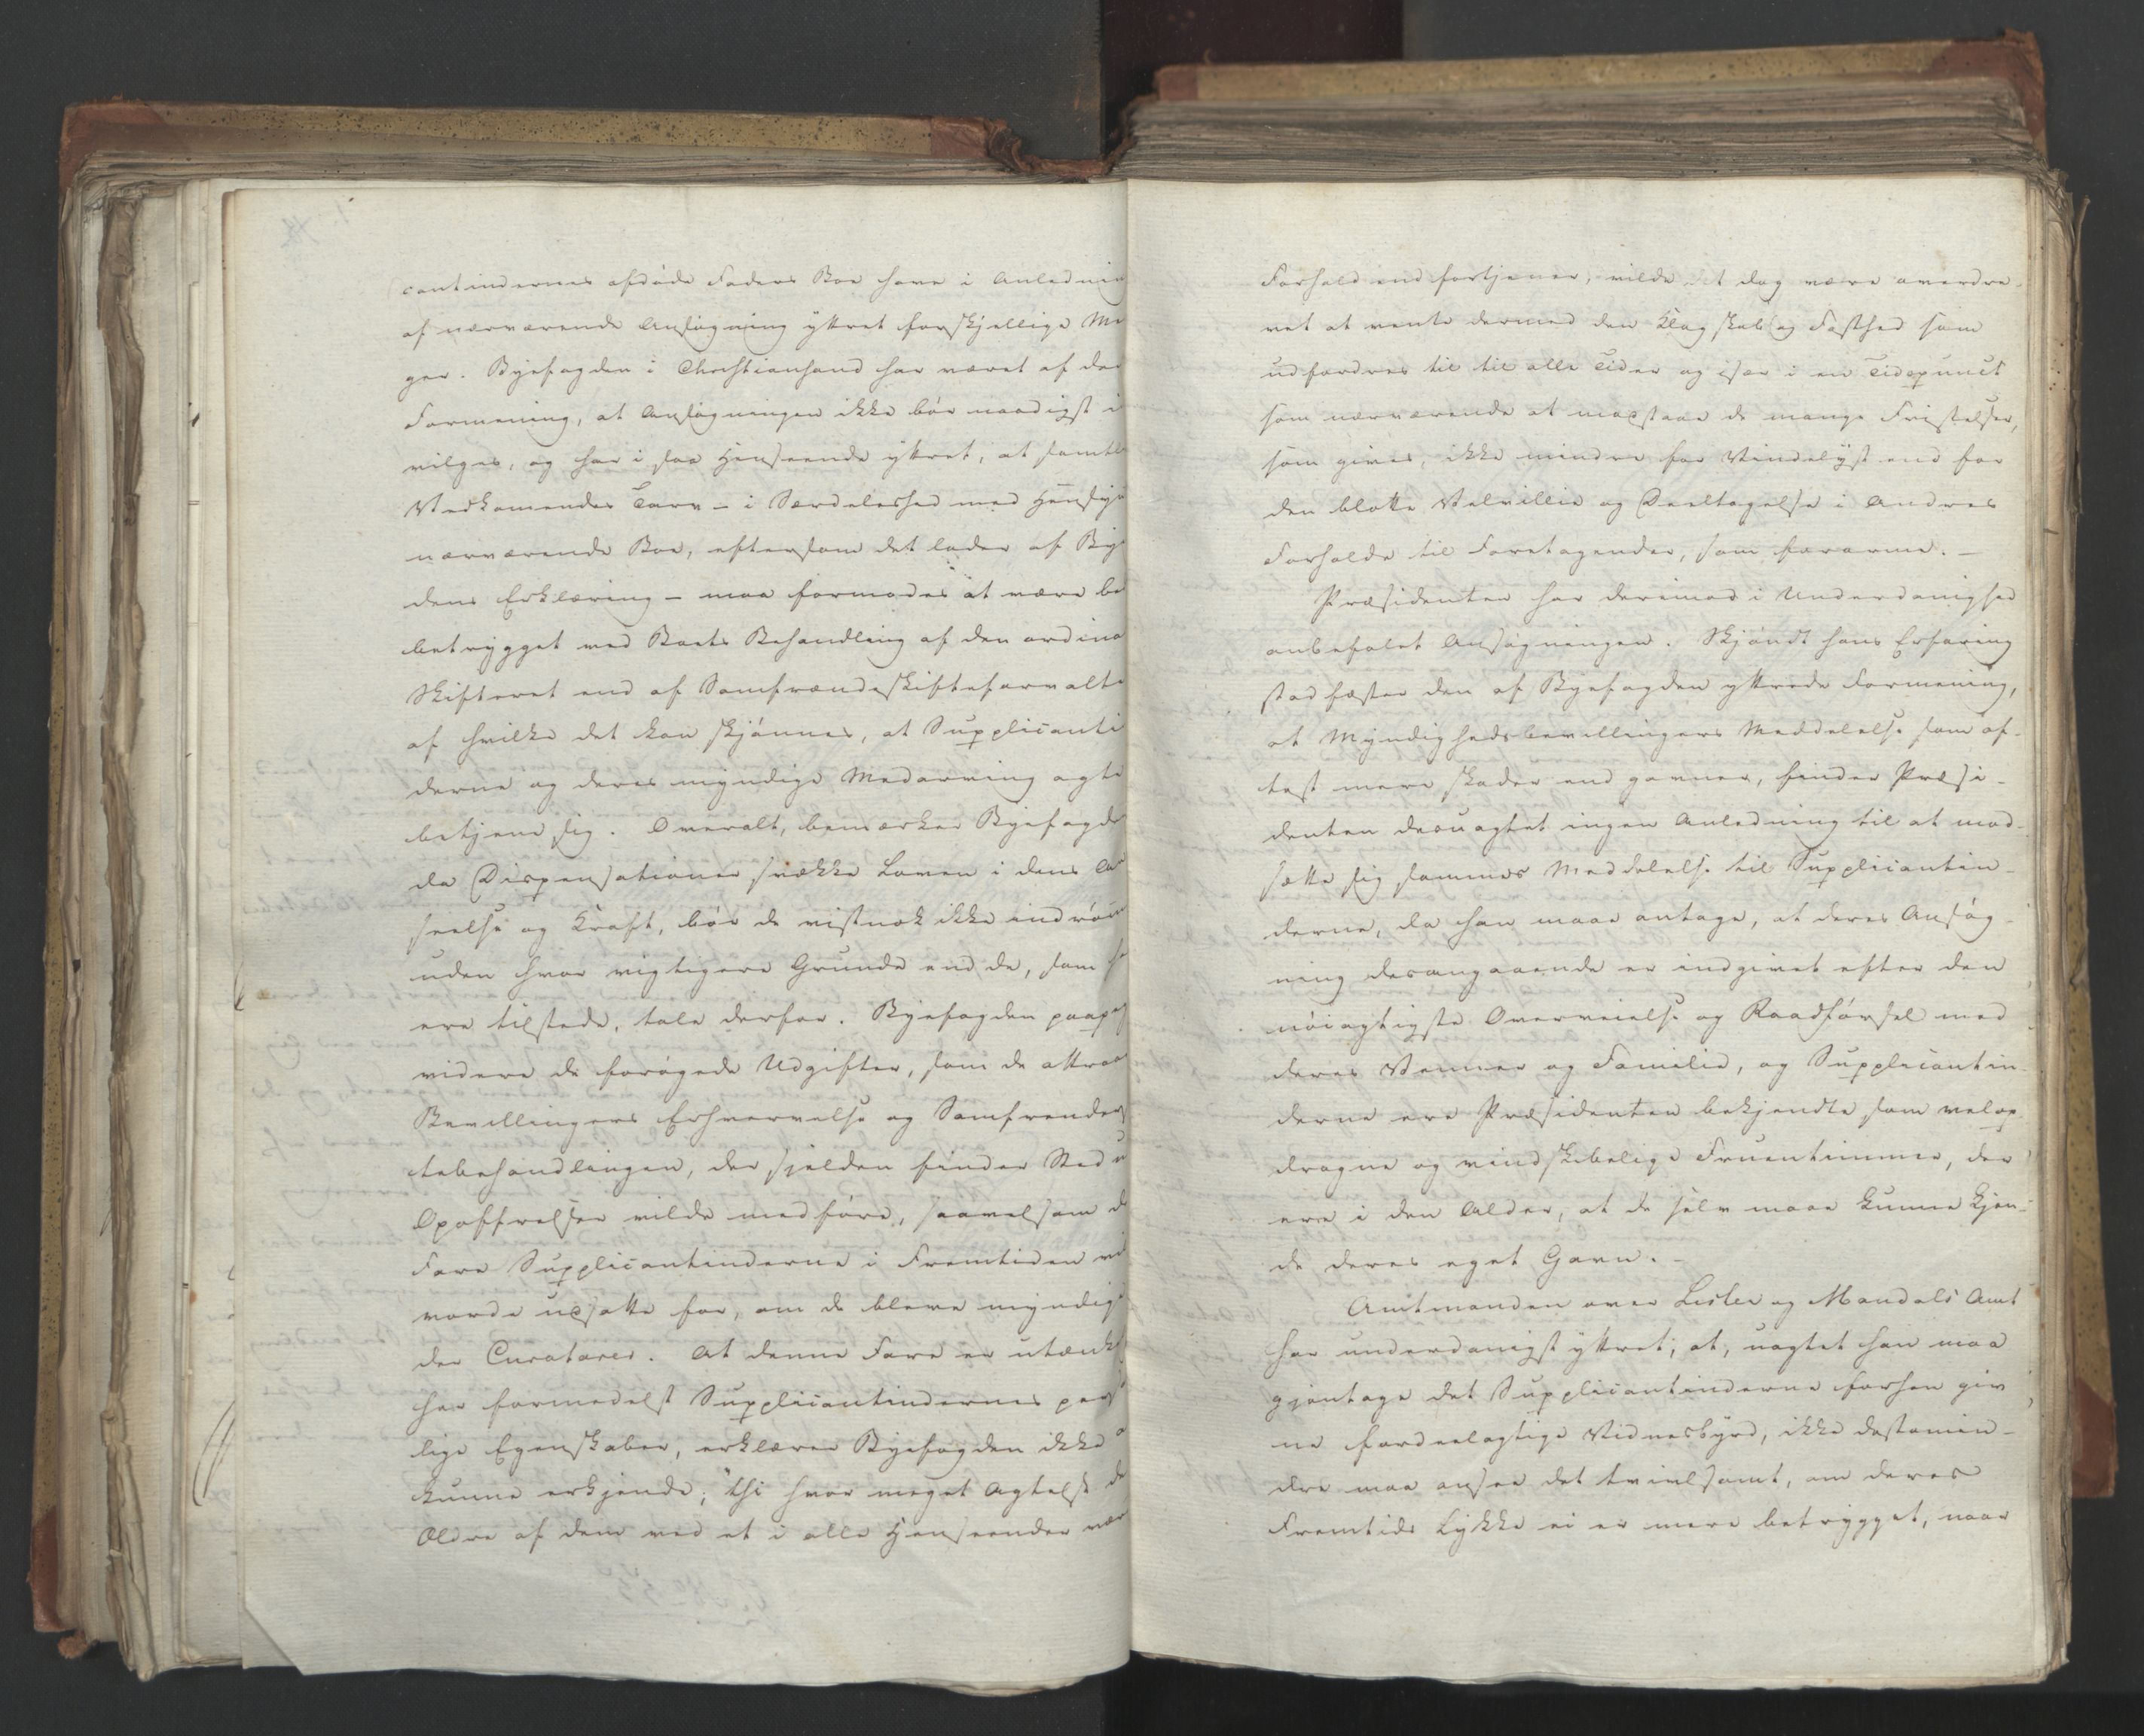 cantindernes afdøde Faders Boe have i Anlednin
af nærværende Ansøgning yttret forskjellige Me
ger. Byefogden i Christiansand har været af den
Formening, at Ansøgningen ikke bør naadigst i
vilges, og har i saa Henseende yttret, at samtl
Vedkomendes Tarv – i Særdeleshed med Hensyn
nærværende Boe, eftersom det lader af Bye
dens Erklæring – maa formodes at være be
betrygget ved Boets Behandling af den ordina
Skifteret end af Samfrændeskifteforvalte
af hvilke det kan skjønnes, at Supplicanti
derne og deres myndige Medarving agte
betjene sig. Overalt, bemærker Byefogde
da Dispensationer svække Loven i dens An
seelse og Kraft, bør de vistnok ikke indrøm
uden hvor vigtigere Grunde end de, som h
ere tilstede, tale derfor. Byefogden paapeg
videre de forøgede Udgifter, som de attraa
Bevillingers Erhvervelse og Samfrendes
tebehandlingen, der sjelden finder Sted u
Opoffrelser vilde medføre, saavelsom d
Fare Supplicantinderne i Fremtiden vi
vorde udsatte for, om de bleve myndig
der Curatorer. At denne Fare er utænke
her formedelst Supplicantindernes pers
lige Egenskaber, erklærer Byefogden ikke a
kunne erkjende; thi hvor meget Agtelse de
Ældre af dem ved et i alle Henseender vær
Forhold end fortjener, vilde det dog være overdre-
vet at vente dermed den Klogskab og Fasthed som
udfordres til til alle Tider og især i en Tidspunct
som nærværende at modstaae de mange Fristelser,
som gives, ikke mindre for Vindelyst end for
den blotte Velvillie og Deeltagelse i Andres
Forholde til Foretagender, som forarme. –
Præsidenten har derimod i Underdanighed
anbefalet Ansøgningen. Skjøndt hans Erfaring
stadfæster den af Byefogden yttrede Formening,
at Myndighedsbevillingers Meddelelse som of-
test mere skader end gavner, finder Præsi-
denten desuagtet ingen Anledning til at mod-
sætte sig sammes Meddelelse til Supplicantin-
derne, da han maae antage, at deres Ansøg-
ning desangaaende er indgivet efter den
nøiagtigste Overveielse og Raadførsel med
deres Venner og Familie, og Supplicantin-
derne ere Præsidenten bekjendte som velop-
dragne og vindskibelige Fruentimmer, der
ere i den Alder, at de selv maae kunne kjen-
de deres eget Gavn. –
Amtmanden over Lister og Mandals Amt
har underdanigst yttret, at, uagtet han maa
gjentage det Supplicantinderne forhen giv
ne fordeelagtige Vidnesbyrd, ikke destomin-
dre maa ansee det tvivlsomt, om deres
Fremtids Lykke ei er mere betrygget, naar